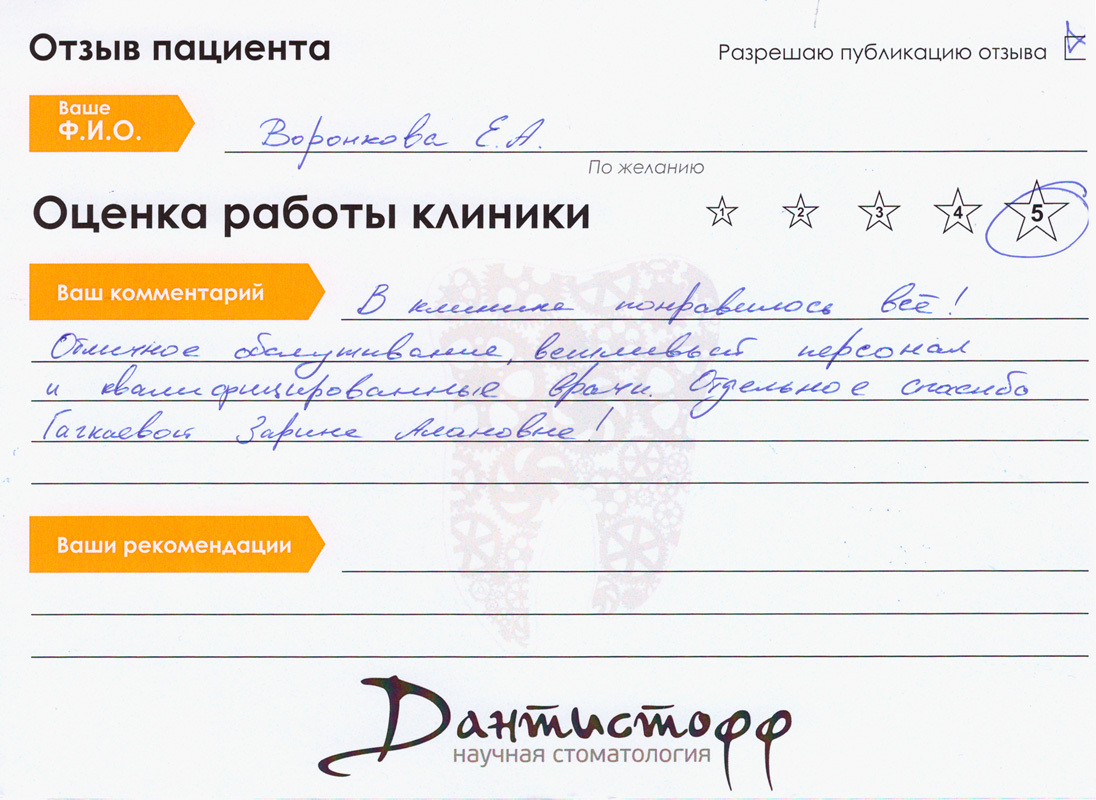 Отзыв пациента
Разрешаю публикацию отзыва
Ваше
Ф.И.О.
Воронкова Е.А.
По желанию
Оценка работы клиники
1 2 3 4 5
Ваш комментарий
В клинике понравилось всё!
Отличное обслуживание, вежливый персонал
и квалифицированные врачи. Отдельное спасибо
Гагкаевой Зарине Алановне!
Ваши рекомендации
Дантистофф
научная стоматология